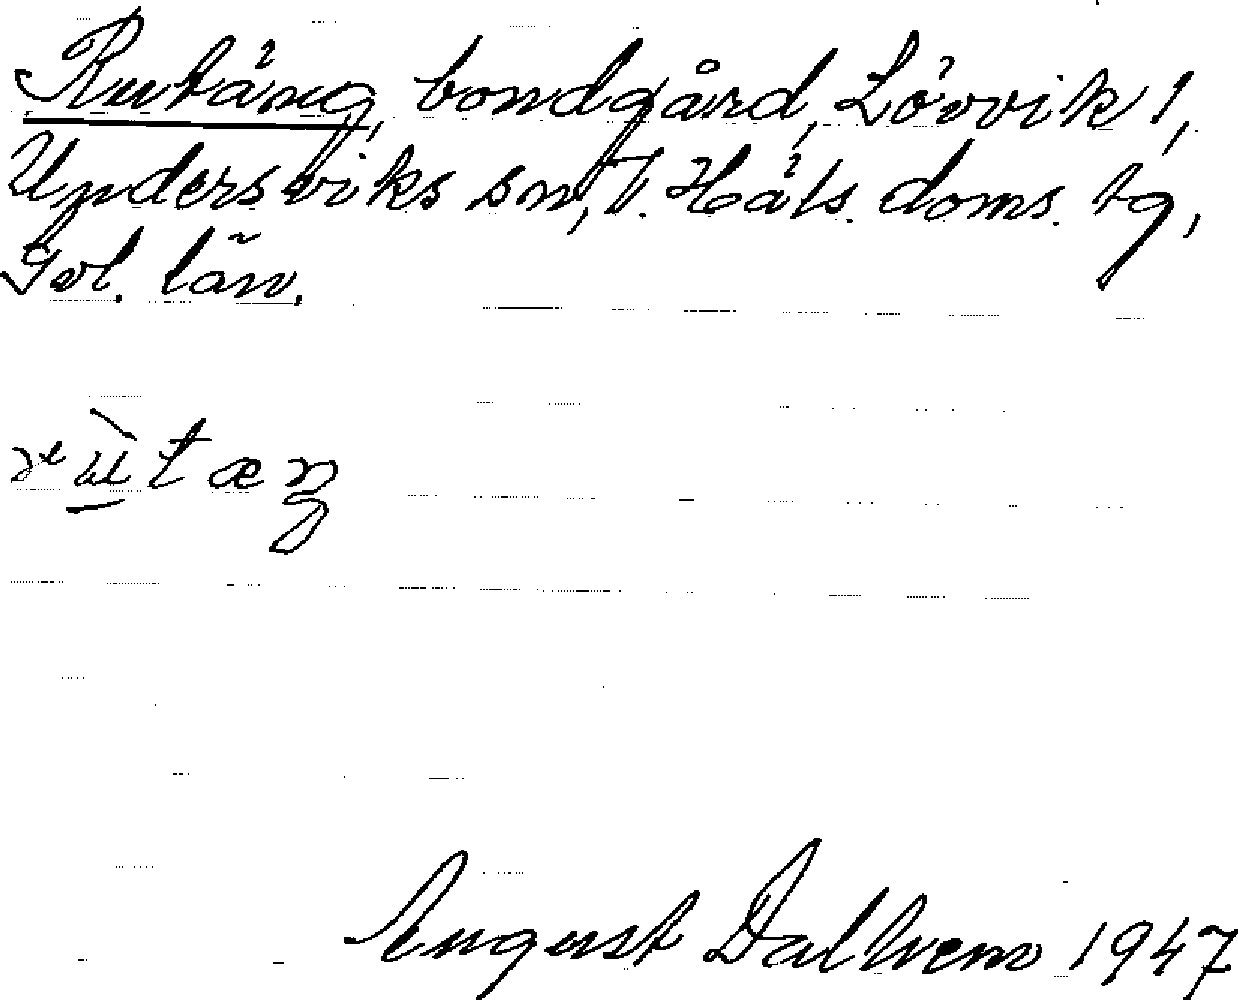 Rutäng, bondgård, Lövvik 1,
Undersviks sn, V. Häls. doms. tg,
Gvl. län.
August Dalhem 1947